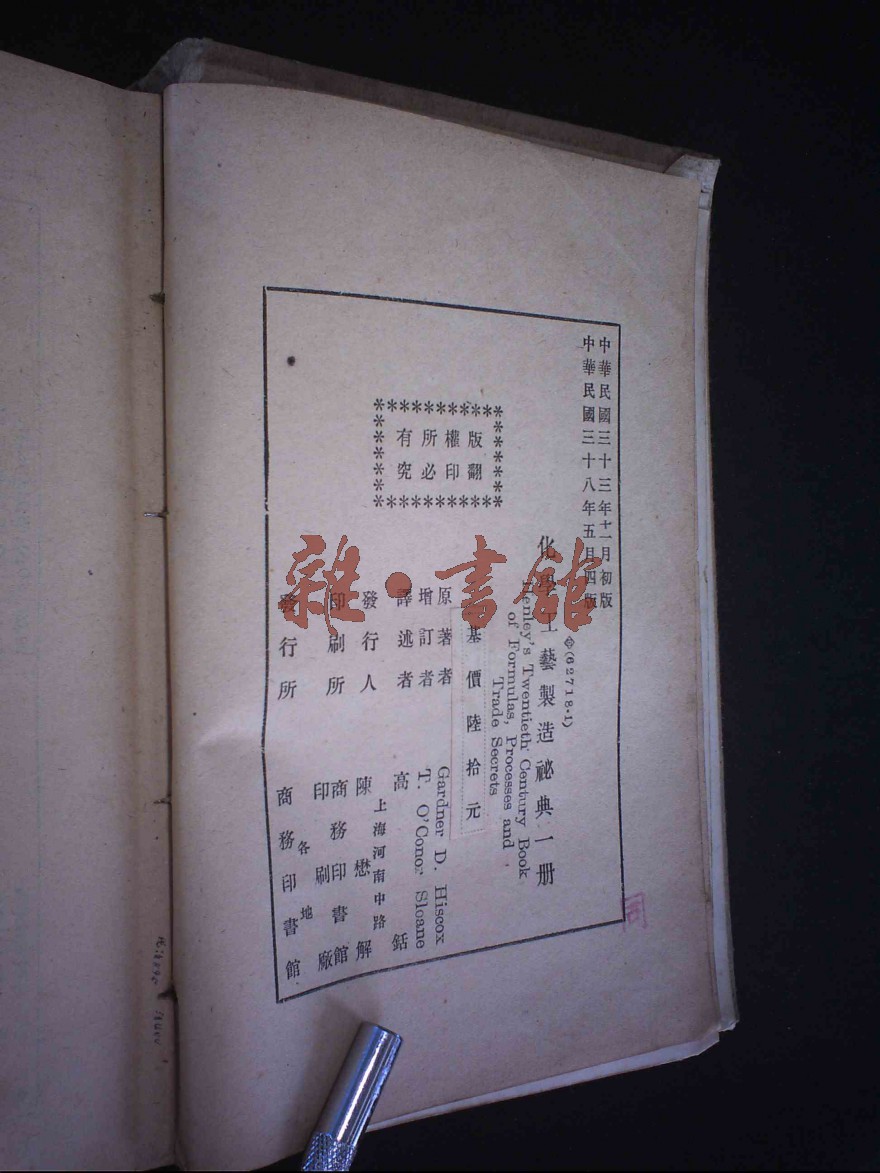 中華民國三十三年十一月初版
中華民國三十八年五月四版
(62718·1)
化學工藝製造祕典一册
Henley's Twentieth Century Book
of Formulas, Processes and
Trade Secrets
基價陸拾元
版權所有
翻印必究
原著者 Gardner D. Hiscox
增訂者 T. O'Conor Sloane
譯述者 高銛
上海河南中路
發行人 陳懋解
印刷所 商務印書館
印刷廠
各地
發行所 商務印書館
雜·書館